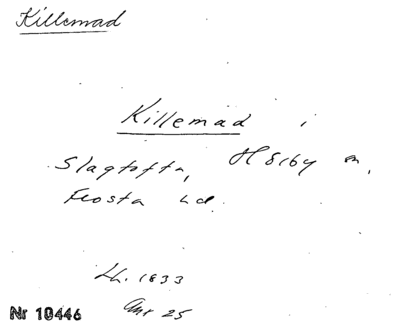 Killemad
Killemad i
Slagtofta, Hörby sn,
Frosta hd.
Lh. 1833
Anr 25
Nr 10446